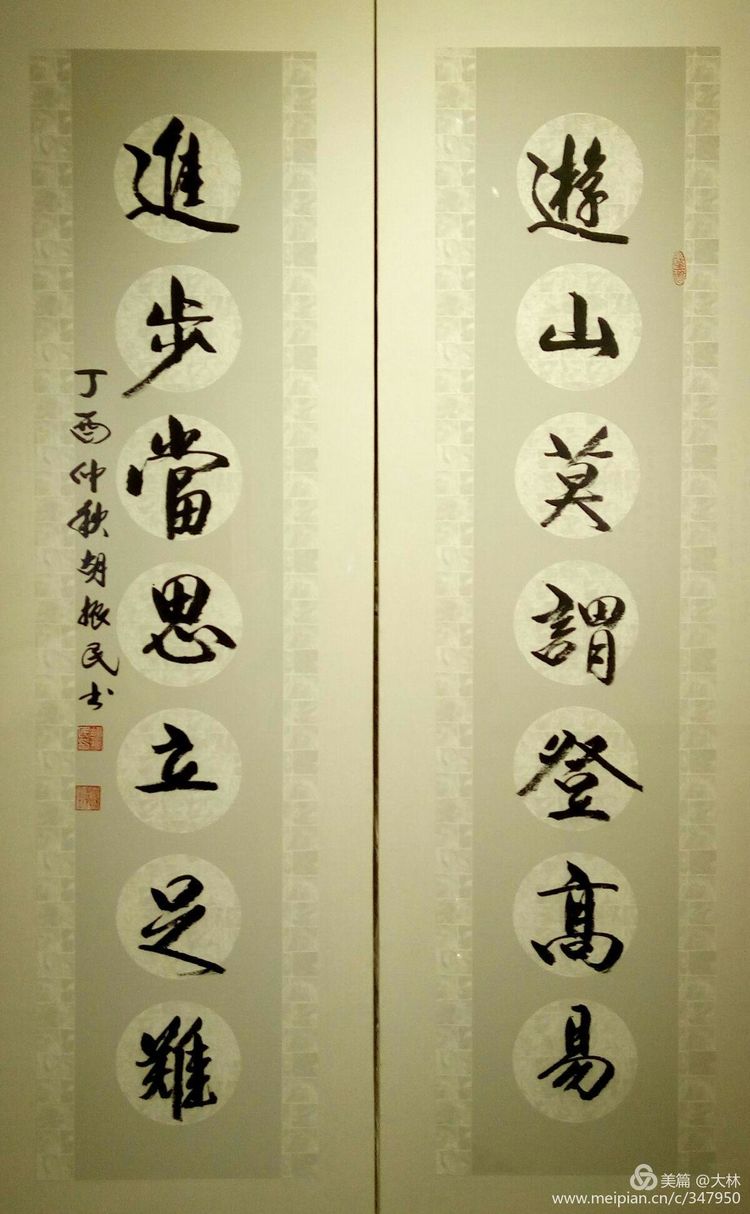 遊山莫謂登高易
進步當思立足難
丁酉仲秋胡振民书
美篇 @大林
www.meipian.cn/c/347950